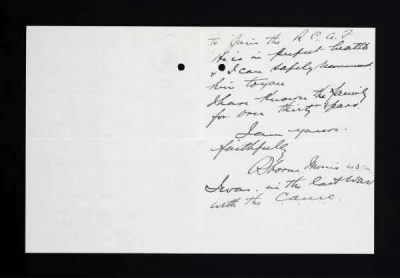 to join the R.C.A.F
He is in perfect health
& I can safely recommend
him to you
I have known the family
for over thirty years.
I am yours.
faithfully
Morris
I was in the last war
with the